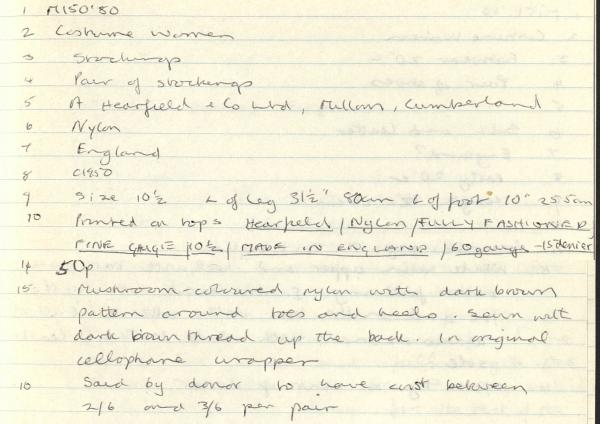 1 M150'80
2 Costume Women
3 Stockings
4 Pair of stockings
5 A Hearfield & Co Ltd, Millom, Cumberland
6 Nylon
7 England
8 C1950
9 Size 10½ L of leg 31½" 80cm L of foot 10" 25.5cm
10 Printed on tops Hearfield / Nylon / FULLY FASHIONED /
FINE GAUGE 10½ / MADE IN ENGLAND / 60 gauge - 15 denier
14 50p
15 Mushroom-coloured nylon with dark brown
pattern around toes and heels. Sewn with
dark brown thread up the back. In original
cellophane wrapper
10 Said by donor to have cost between
2/6 and 3/6 per pair